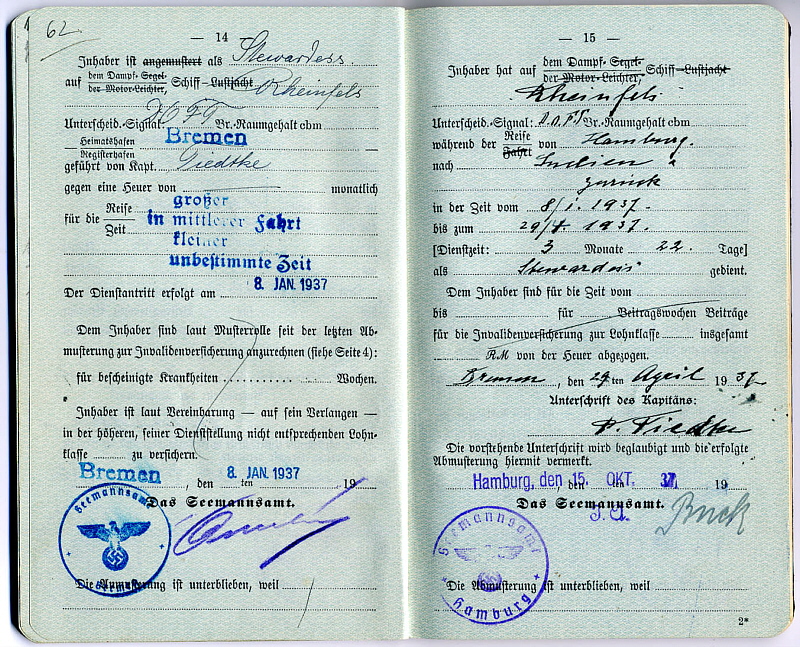 62.
— 14 —
Inhaber ist angemustert als Stewardess.
auf dem Dampf- Segel- Schiff Luftjacht Rheinfels
der Motor-Leichter,
Unterscheid.-Signal: DOFT Br.-Raumgehalt cbm
Heimatshafen Bremen
Registerhafen
geführt von Kapt. Tiedtke
gegen eine Heuer von monatlich
großer
für die Reise in mittlerer Fahrt
Zeit kleiner
unbestimmte Zeit
Der Dienstantritt erfolgt am 8. JAN. 1937
Dem Inhaber sind laut Musterrolle seit der letzten Ab-
musterung zur Invalidenversicherung anzurechnen (siehe Seite 4):
für bescheinigte Krankheiten Wochen.
Inhaber ist laut Vereinbarung — auf sein Verlangen —
in der höheren, seiner Dienststellung nicht entsprechenden Lohn-
klasse zu versichern.
Bremen, den 8. JAN. 1937 ten 19
Das Seemannsamt.
Seemannsamt
Bremen
Die Abmusterung ist unterblieben, weil
— 15 —
Inhaber hat auf dem Dampf- Segel- Schiff Luftjacht
der Motor-Leichter,
Rheinfels
Unterscheid.-Signal: D.O.F.T. Br.-Raumgehalt cbm
während der Reise von Hamburg.
Fahrt
nach Indien u
zurück
in der Zeit vom 8/I. 1937.
bis zum 29/4. 1937.
[Dienstzeit: 3 Monate 22. Tage]
als Stewardess gedient.
Dem Inhaber sind für die Zeit vom
bis für Beitragswochen Beiträge
für die Invalidenversicherung zur Lohnklasse insgesamt
RM von der Heuer abgezogen.
Bremen, den 29 ten April 1937
Unterschrift des Kapitäns:
P. Tiedtke
Die vorstehende Unterschrift wird beglaubigt und die erfolgte
Abmusterung hiermit vermerkt.
Hamburg, den 15. OKT. 37 19
Das Seemannsamt.
J. A. Buck
Seemannsamt
Hamburg
Die Abmusterung ist unterblieben, weil
2*